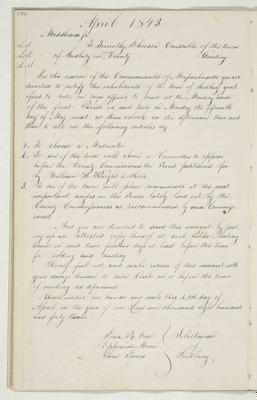 April 1843
Middlesex ss.
L.S. To Timothy Johnson Constable of the town
L.S. of Sudbury in County Greeting
L.S. In the name of the Commonwealth of Massachusetts you are
directed to notify the inhabitants of the town of Sudbury qual
ified to vote in town affairs to meet at the Meeting house
of the first Parish in said town on Monday the fifteenth
day of May next at three o'clock in the afternoon then and
there to act on the following articles viz
1. To choose a Moderator
2. To see if the town will choose a Committee to appear
before the County Commissioners the Road petitioned for
by William H. Knight & others
3. To see if the town will place monuments at the most
important angles in the Roads lately laid out by the
County Commissioners as recommended by said Commiss
ioners
And you are directed to serve this warrant by post
ing up an attested copy thereof at each Public Meeting
house in said town fourteen days at least before the time
for holding said meeting
Hereof fail not and make return of this warrant with
your doings thereon to town Clerk on or before the time
of meeting as aforesaid
Given under our hands and seals this day of
April in the year of our Lord one thousand eight hundred
and forty three
Ephraim Moore
Selectmen
of
Sudbury